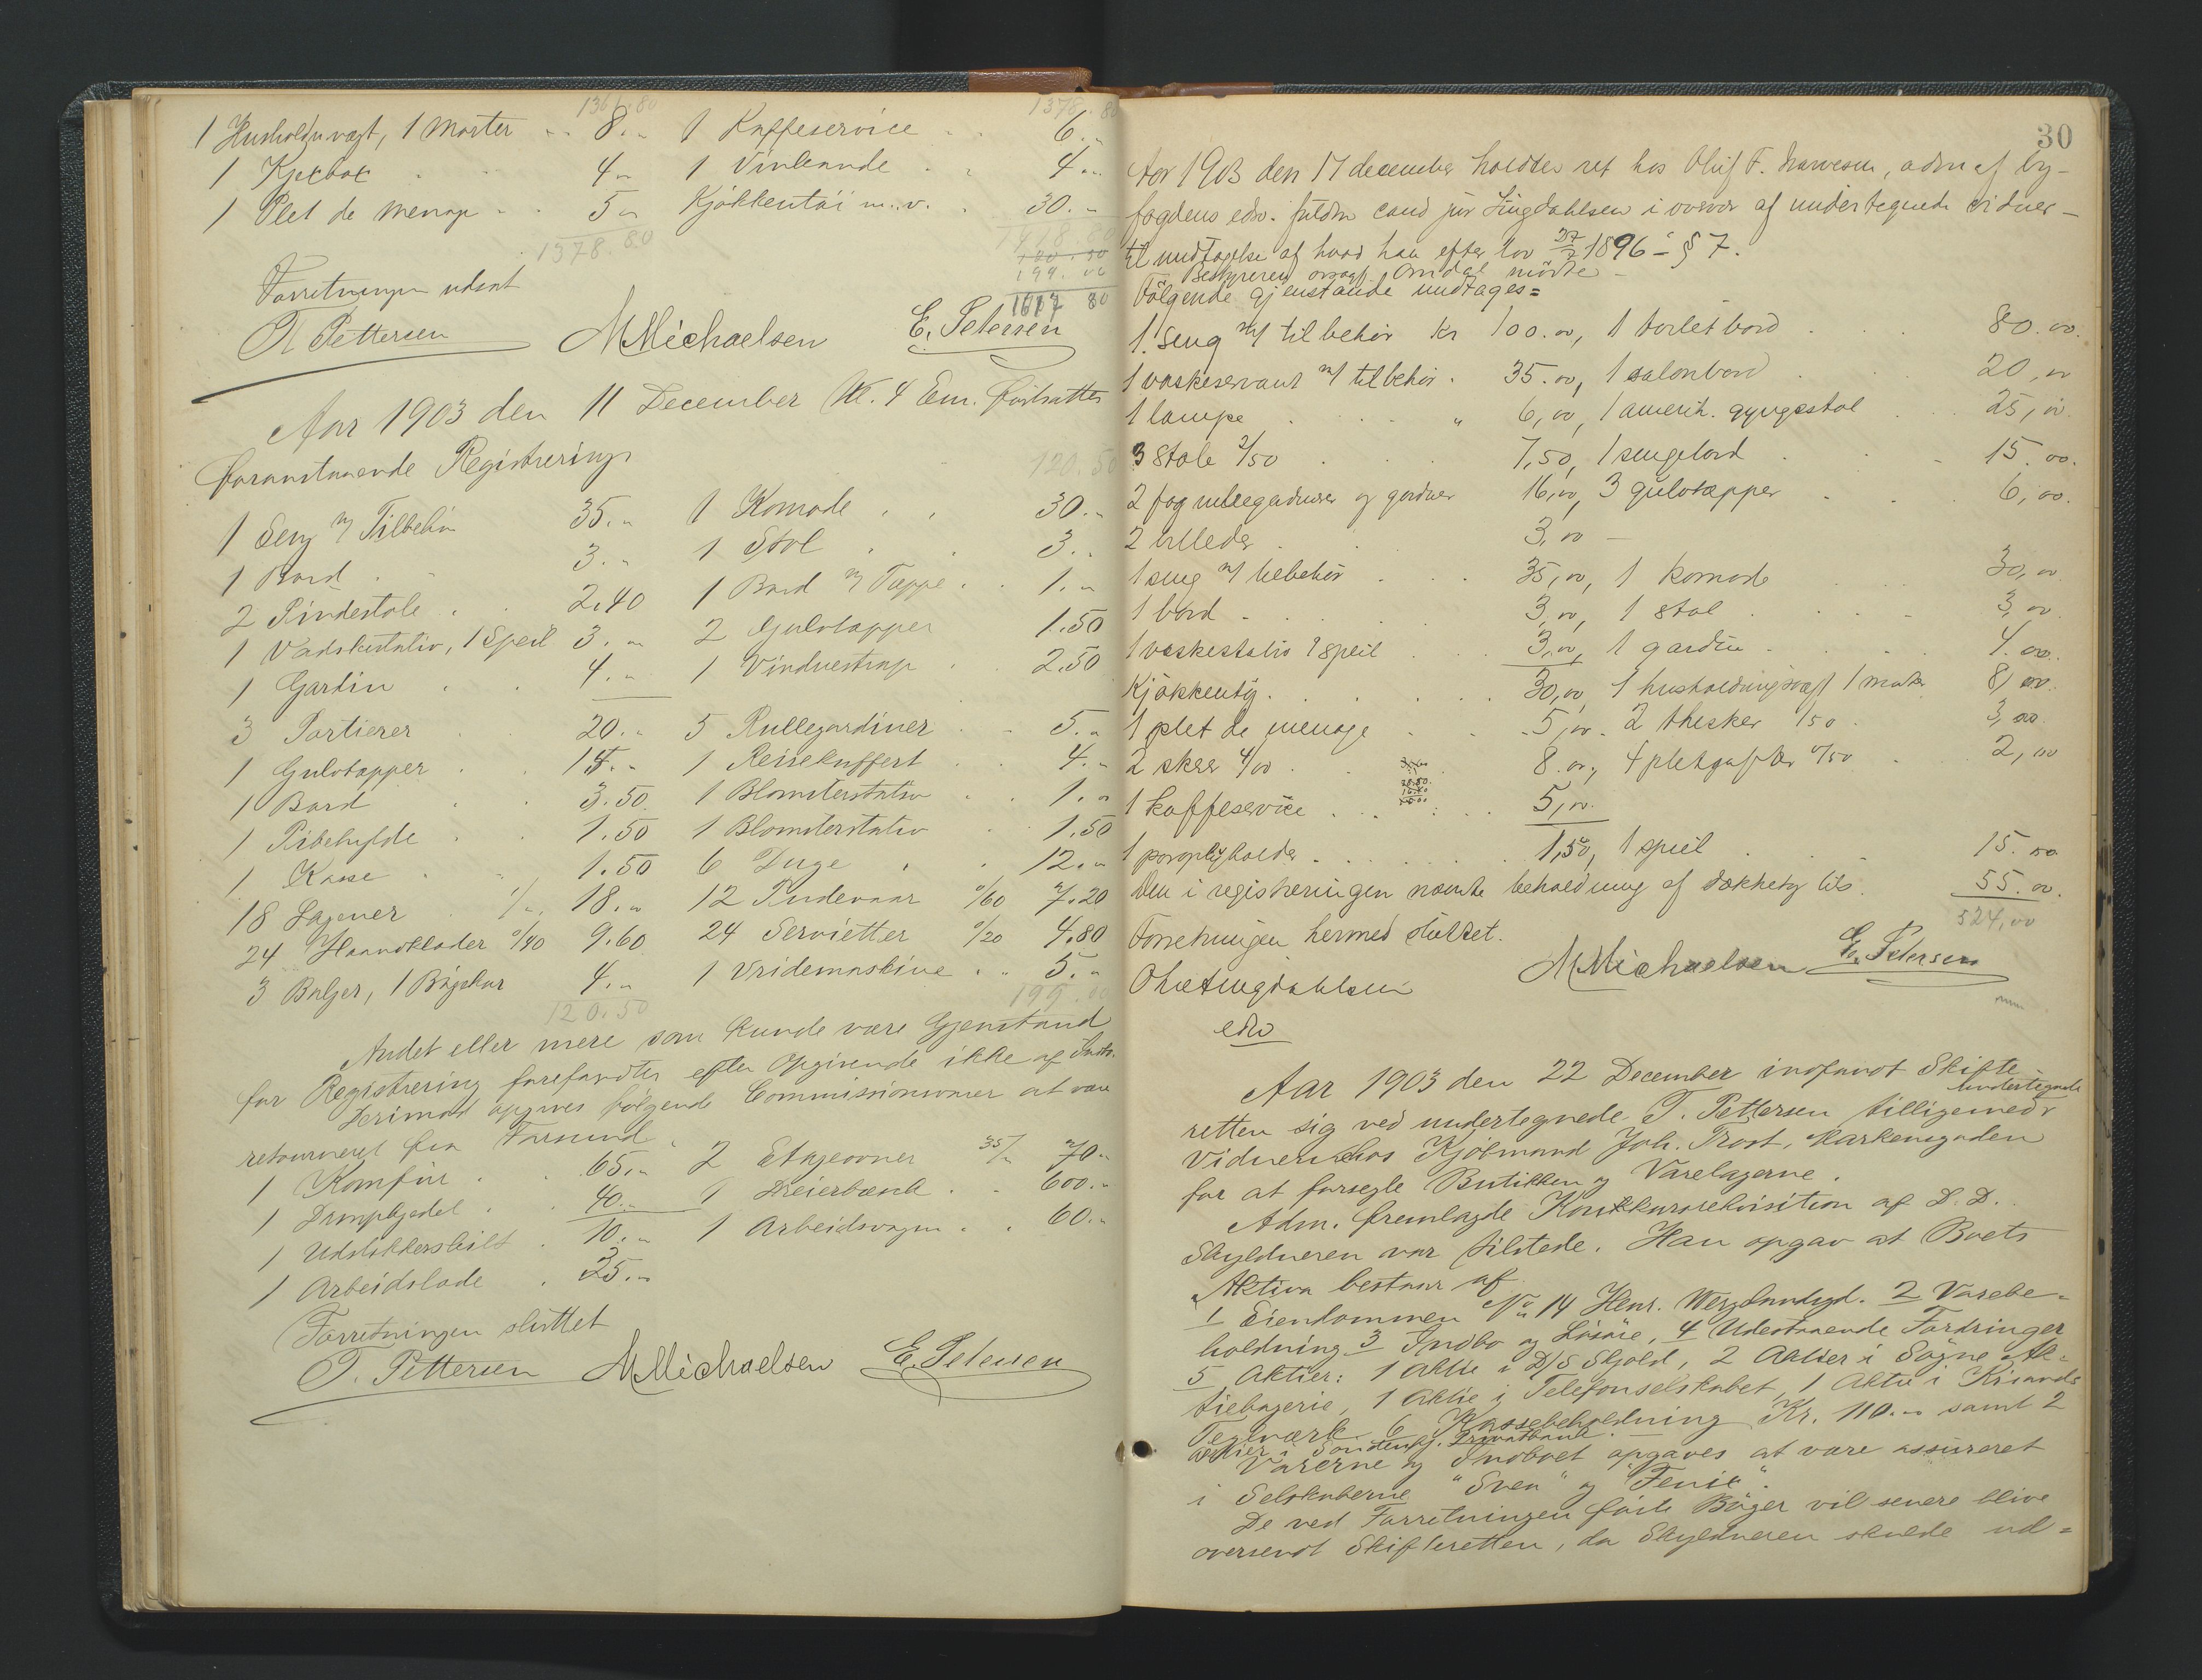 1361.80 1378.80
1 Husholdnvægt, 1 Morter 8.- 1 Kaffeservice 6.-
1 Kjexbox 4.- 1 Vinkande 4.-
1 Plet de menage 5.- Kjøkkentøi m.v. 30.-
1378.80 1418.80
120.50
199.00
Forretningen udsat 1617 80
T Pettersen MMichaelsen E. Petersen
Aar 1903 den 11 December Kl. 4 Em. fortsattes
foranstaaende Registrering 120.50
1 Seng m/ Tilbehør 35.- 1 Komode 30.-
1 Bord 3.- 1 Stol 3.-
2 Pindestole 2.40 1 Bord m/ Tæppe 1.-
1 Vadskestativ, 1 Speil 3.- 2 Gulvtæpper 1.50
1 Gardin 4.- 1 Vinduestrap 2.50
3 Portierer 20.- 5 Rullegardiner 5.-
1 Gulvtæpper 15.- 1 Reisekuffert 4.-
1 Bord 3.50 1 Blomsterstativ 1.-
1 Pibehylde 1.50 1 Blomsterstativ 1.50
1 Kasse 1.50 6 Duge 12.-
18 Lagener 1/- 18.- 12 Pudevaar 0/60 7.20
24 Haandklæder 0/40 9.60 24 Servietter 0/20 4.80
3 Baljer, 1 Bøgekar 4.- 1 Vridemaskine 5.-
120.50 199.00
Andet eller mere som kunde være Gjenstand
for Registrering forefandtes efter Opgivende ikke af Indb.
Derimod opgives følgende Commissionsvarer at være
retourneret fra Farsund
1 Komfür 65.- 2 Etageovner 35/- 70.-
1 Dampkjedel 40.- 1 Dreierbænk 600.-
1 Udstikkerskilt 10.- 1 Arbeidsvogn 60.-
1 Arbeidslade 25.-
Forretningen sluttet
T. Pettersen MMichaelsen E. Petersen
30
Aar 1903 den 17 december holdtes ret hos Oluf F. Narvesen, adm af by-
fogdens edsv. fuldm cand jur Lüngdahlsen i overvær af undertegnede vidner -
til undtagelse af hvad han efter lov 27/7 1896 - § 7.
Bestyreren ovsagf. Omdal mødte -
Følgende gjenstande undtages =
1 seng m/ tilbehør kr 100.00, 1 toiletbord 80.00.
1 vaskeservant m/ tilbehør 35.00, 1 salonbord 20,00
1 lampe " 6,00, 1 amerik. gyngestol 25,00
3 stole 2/50 7,50, 1 sengebord 15.00.
2 fag rullegardiner og gardiner 16,00, 3 gulvtæpper 6,00.
2 billeder 3,00 -
1 seng m/ tilbehør 35,00, 1 komode 30,00
1 bord 3,00, 1 stol 3,00
1 vaskestativ 1 speil 3,00, 1 gardin 4.00.
Kjøkkentøj 30,00, 1 husholdningsvægt 1 morter 8,00.
1 plet de menage 5,00. 2 theskeer 1/50 3,00
2 skeer 4/00 8.00, 4 pletgafler 0/50 2,00
1 kaffeservice 5,00.
1 paraplyholder 1,50, 1 speil 15.00
Den i registreringen nævnte beholdning af dækketøj tils. 55.00.
524,00
Forretningen hermed sluttet.
MMichaelsen E. Petersen
edsv
Aar 1903 den 22 December indfandt Skifte-
retten sig ved undertegnede T. Pettersen tilligemed undertegnede
Vidner hos Kjøbmand Joh. Trost, Markensgaden
for at forsegle Butikken og Varelagerne.
Adm. fremlagde Konkursrekvisition af D.D.
Skyldneren var tilstede. Han opgav at Boets
Aktiva bestaar af
1 Eiendommen No 14 Henr. Wergelandsgd. 2 Varebe-
holdning 3 Indbo og Løsøre, 4 Udestaaende Fordringer
5 Aktier: 1 Aktie i D/S Skjold, 2 Aktier i Søgne Ak-
tiebageri, 1 Aktie i Telefonselskabet, 1 Aktie i Krsands
Teglværk 6 Kassebeholdning Kr. 110.- samt 2
Aktier i Søndenfj. Privatbank.
Varerne og Indboet opgaves at være assureret
i Selskaberne "Svea" og "Fenix".
De ved Forretningen førte Bøger vil senere blive
oversendt Skifteretten, da Skyldneren skulde ud-